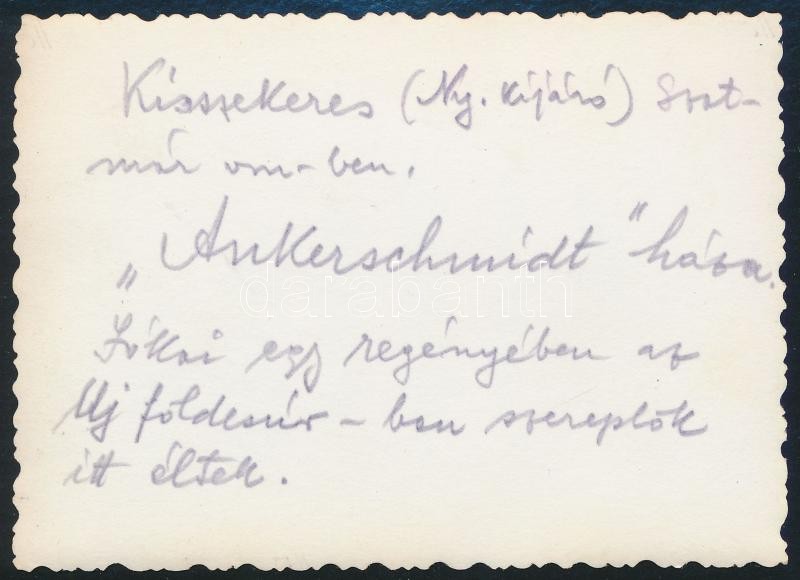 Kisszekeres (Ny. kijáró) Szat-
már vm-ben.
„Ankerschmidt" háza.
darabanth
Jókai egy regényében az
Uj földesúr-ban szereplők
itt éltek.